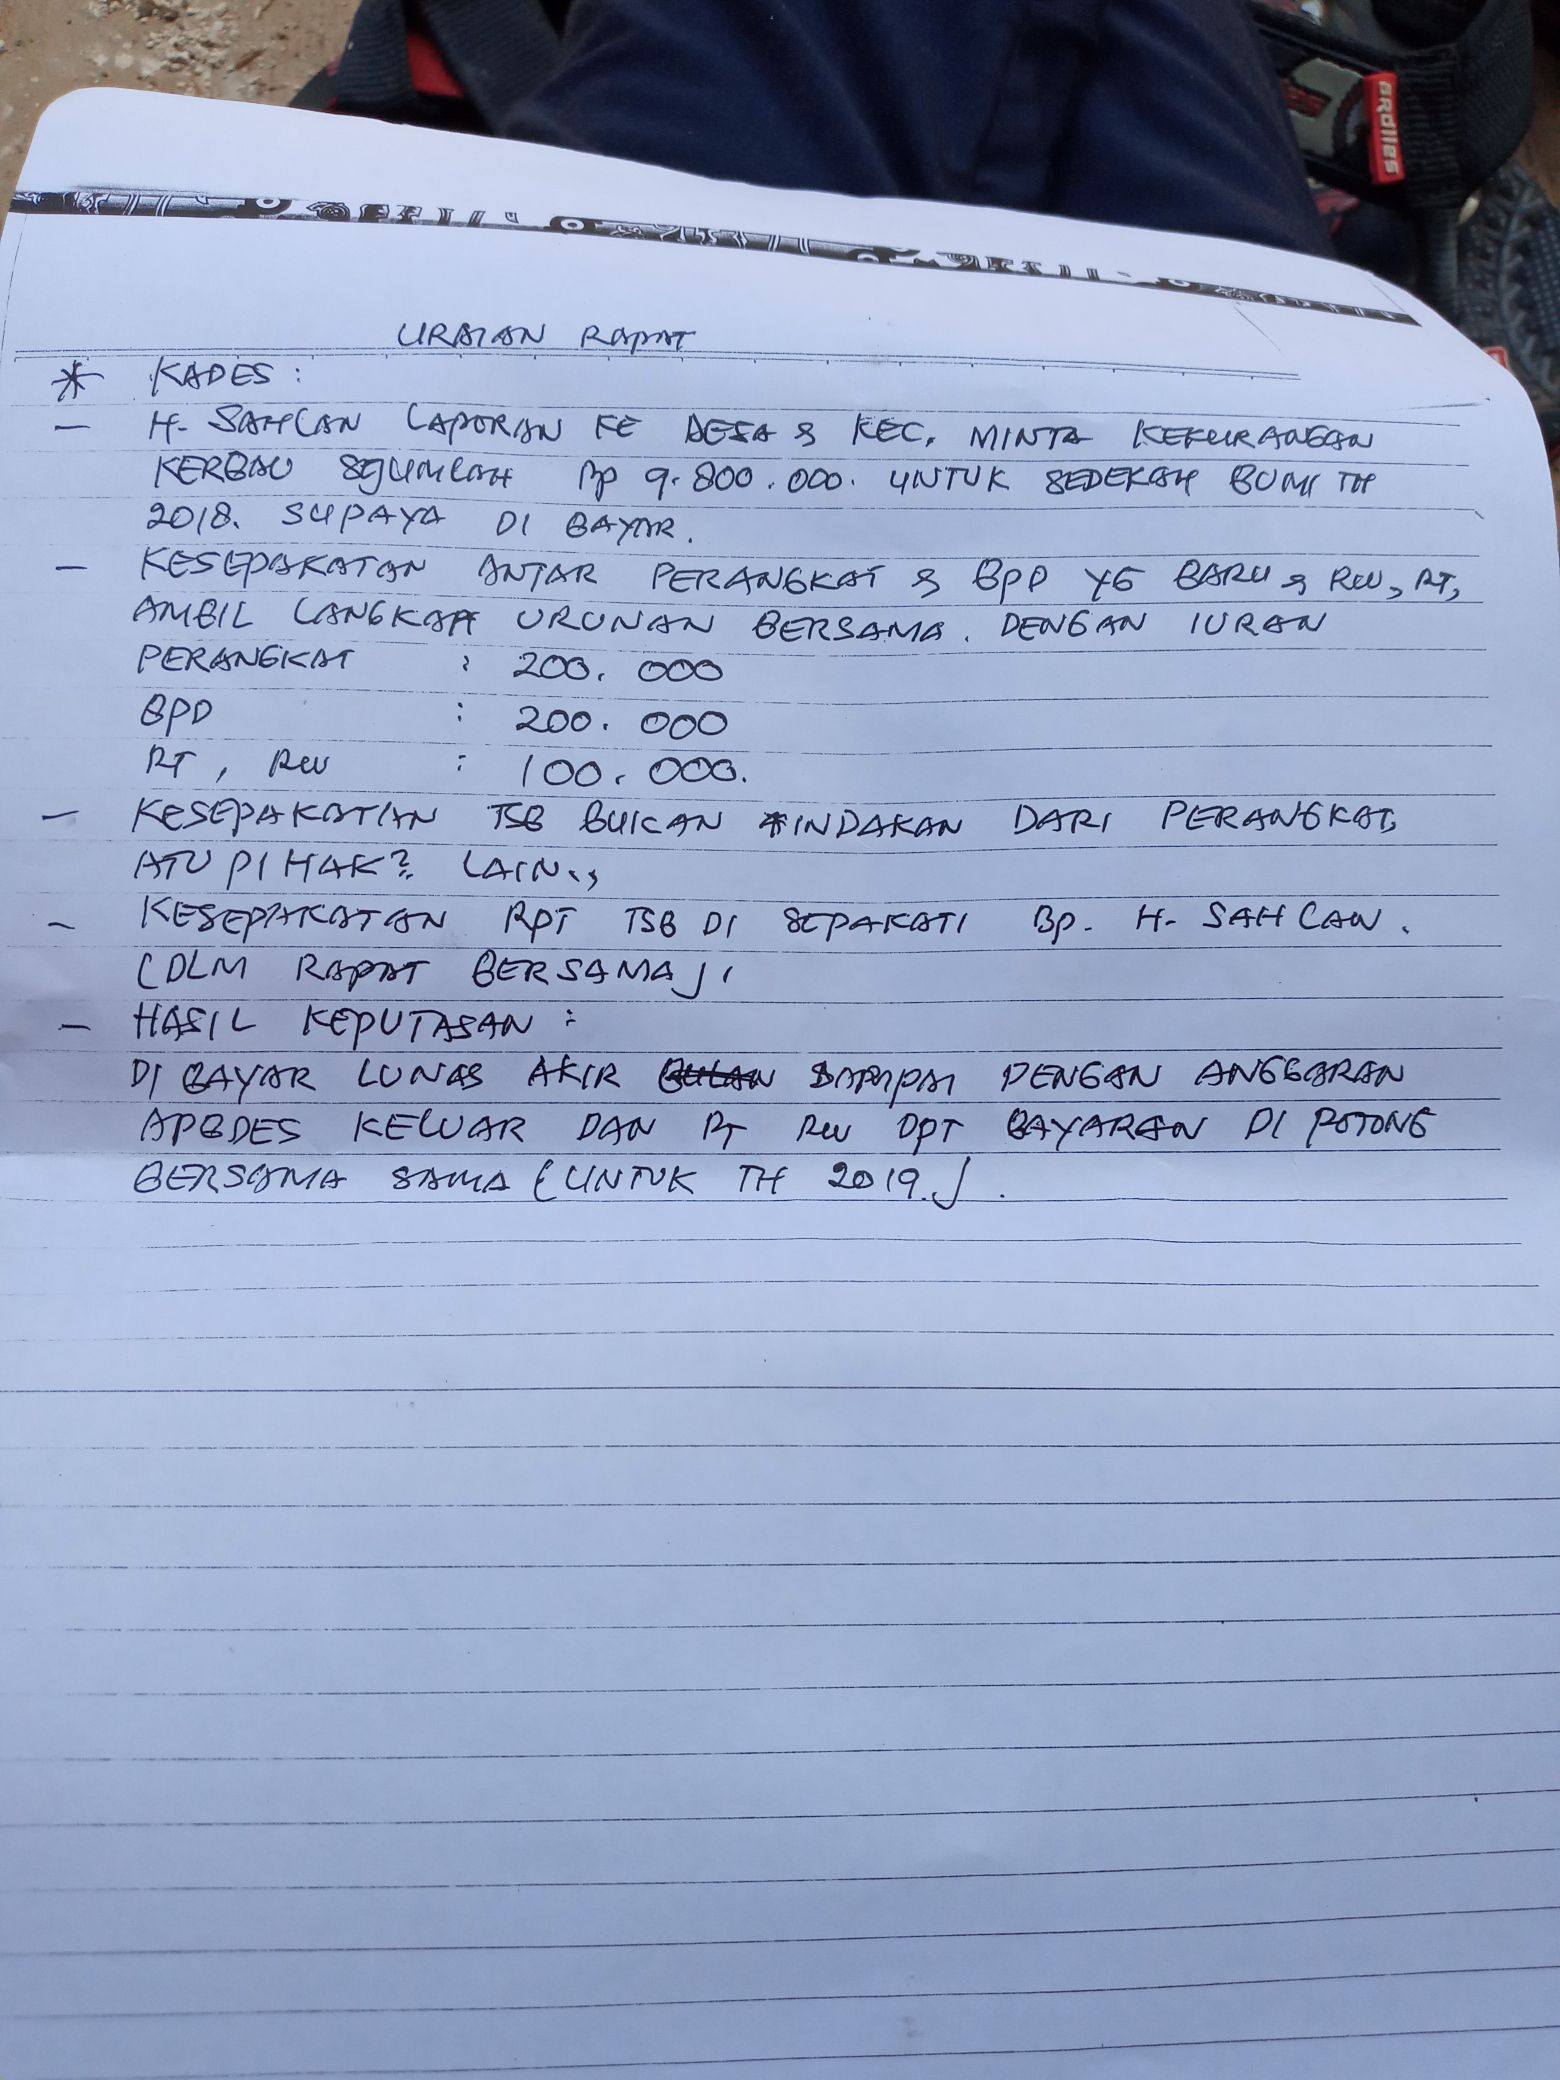 ARDILES
URAIAN RAPAT
* KADES :
- H. SAHLAN LAPORAN KE DESA & KEC. MINTA KEKURANGAN
KERBAU SEJUMLAH Rp 9.800.000. UNTUK SEDEKAH BUMI TH
2018. SUPAYA DI BAYAR.
- KESEPAKATAN ANTAR PERANGKAT & BPD YG BARU & RW, RT,
AMBIL LANGKAH URUNAN BERSAMA. DENGAN IURAN
PERANGKAT : 200.000
BPD : 200.000
RT, RW : 100.000.
- KESEPAKATAN TSB BUKAN TINDAKAN DARI PERANGKAT,
ATU PIHAK2 LAIN.,
- KESEPAKATAN RPT TSB DI SEPAKATI Bp. H. SAHLAN.
(DLM RAPAT BERSAMA).
- HASIL KEPUTASAN :
DI BAYAR LUNAS AKIR BULAN SAMPAI DENGAN ANGGARAN
APBDES KELUAR DAN RT RW DPT BAYARAN DI POTONG
BERSAMA SAMA (UNTUK TH 2019.).